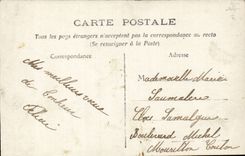 CARTE POSTALE
Tous les pays étrangers n'acceptent pas la correspondance au recto
(Se renseigner à la Poste)
Correspondance
Adresse
Mes meilleurs vœux
de bonheur
Mademoiselle Marie
Clos Lamalgue
Boulevard Michel
Mourillon Toulon